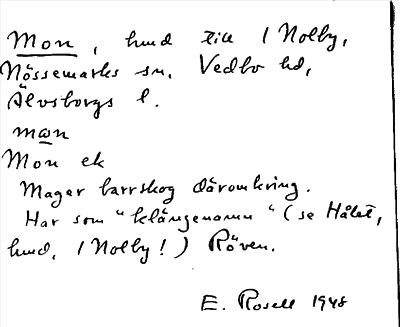 Mon, hmd till 1 Nolby,
Nössemarks sn, Vedbo hd,
Älvsborgs l.
mɷn
Mon ek
Mager barrskog däromkring.
Har som "klängenamn" (se Hålet,
hmd, 1 Nolby!) Röven.
E. Rosell 1948